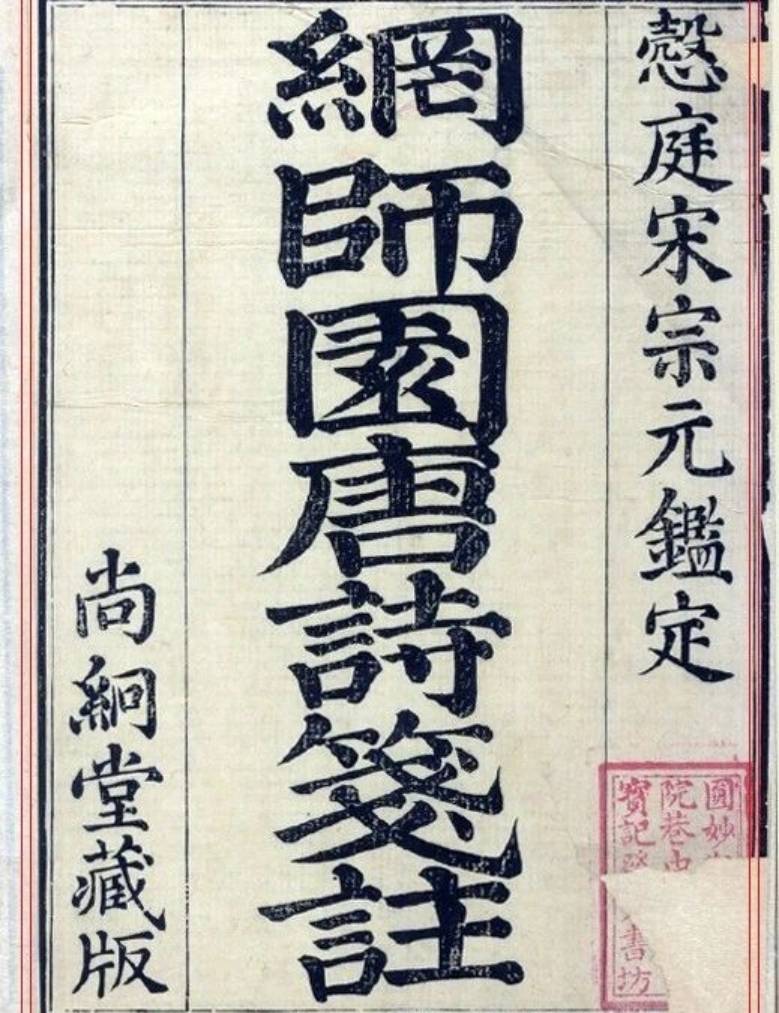 慤庭宋宗元鑑定
網師園唐詩箋註
尚絅堂藏版
圓妙
院巷
寶記
書坊